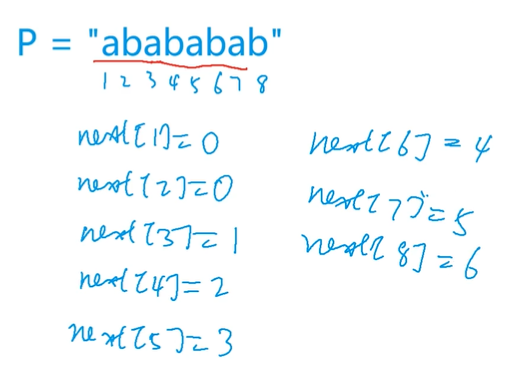 P = "abababab"
1 2 3 4 5 6 7 8
next[1]=0
next[2]=0
next[3]=1
next[4]=2
next[5]=3
next[6]=4
next[7]=5
next[8]=6